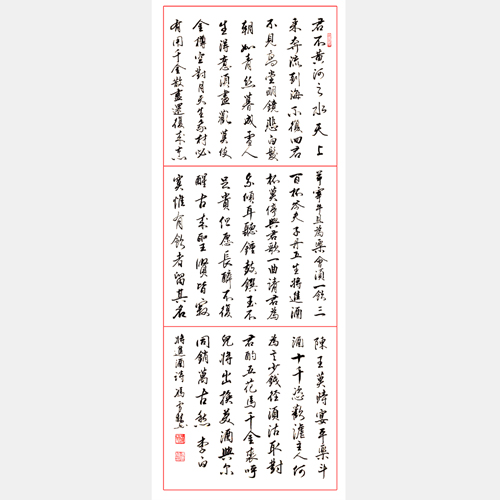 君不黄河之水天上
来奔流到海不復回君
不見高堂明鏡悲白髮
朝如青絲暮成雪人
生得意須盡歡莫使
金樽空對月天生我材必
有用千金散盡還復来烹
羊宰牛且為樂會須一飲三
百杯岑夫子丹丘生將進酒
杯莫停與君歌一曲請君為
我傾耳聽鐘鼓饌玉不
足貴但愿長醉不復
醒古来聖賢皆寂
寞惟有飲者留其名
陳王昔時宴平樂斗
酒十千恣歡謔主人何
為言少錢徑須沽取對
君酌五花馬千金裘呼
兒將出換美酒與尔
同銷萬古愁 李白
將進酒詩